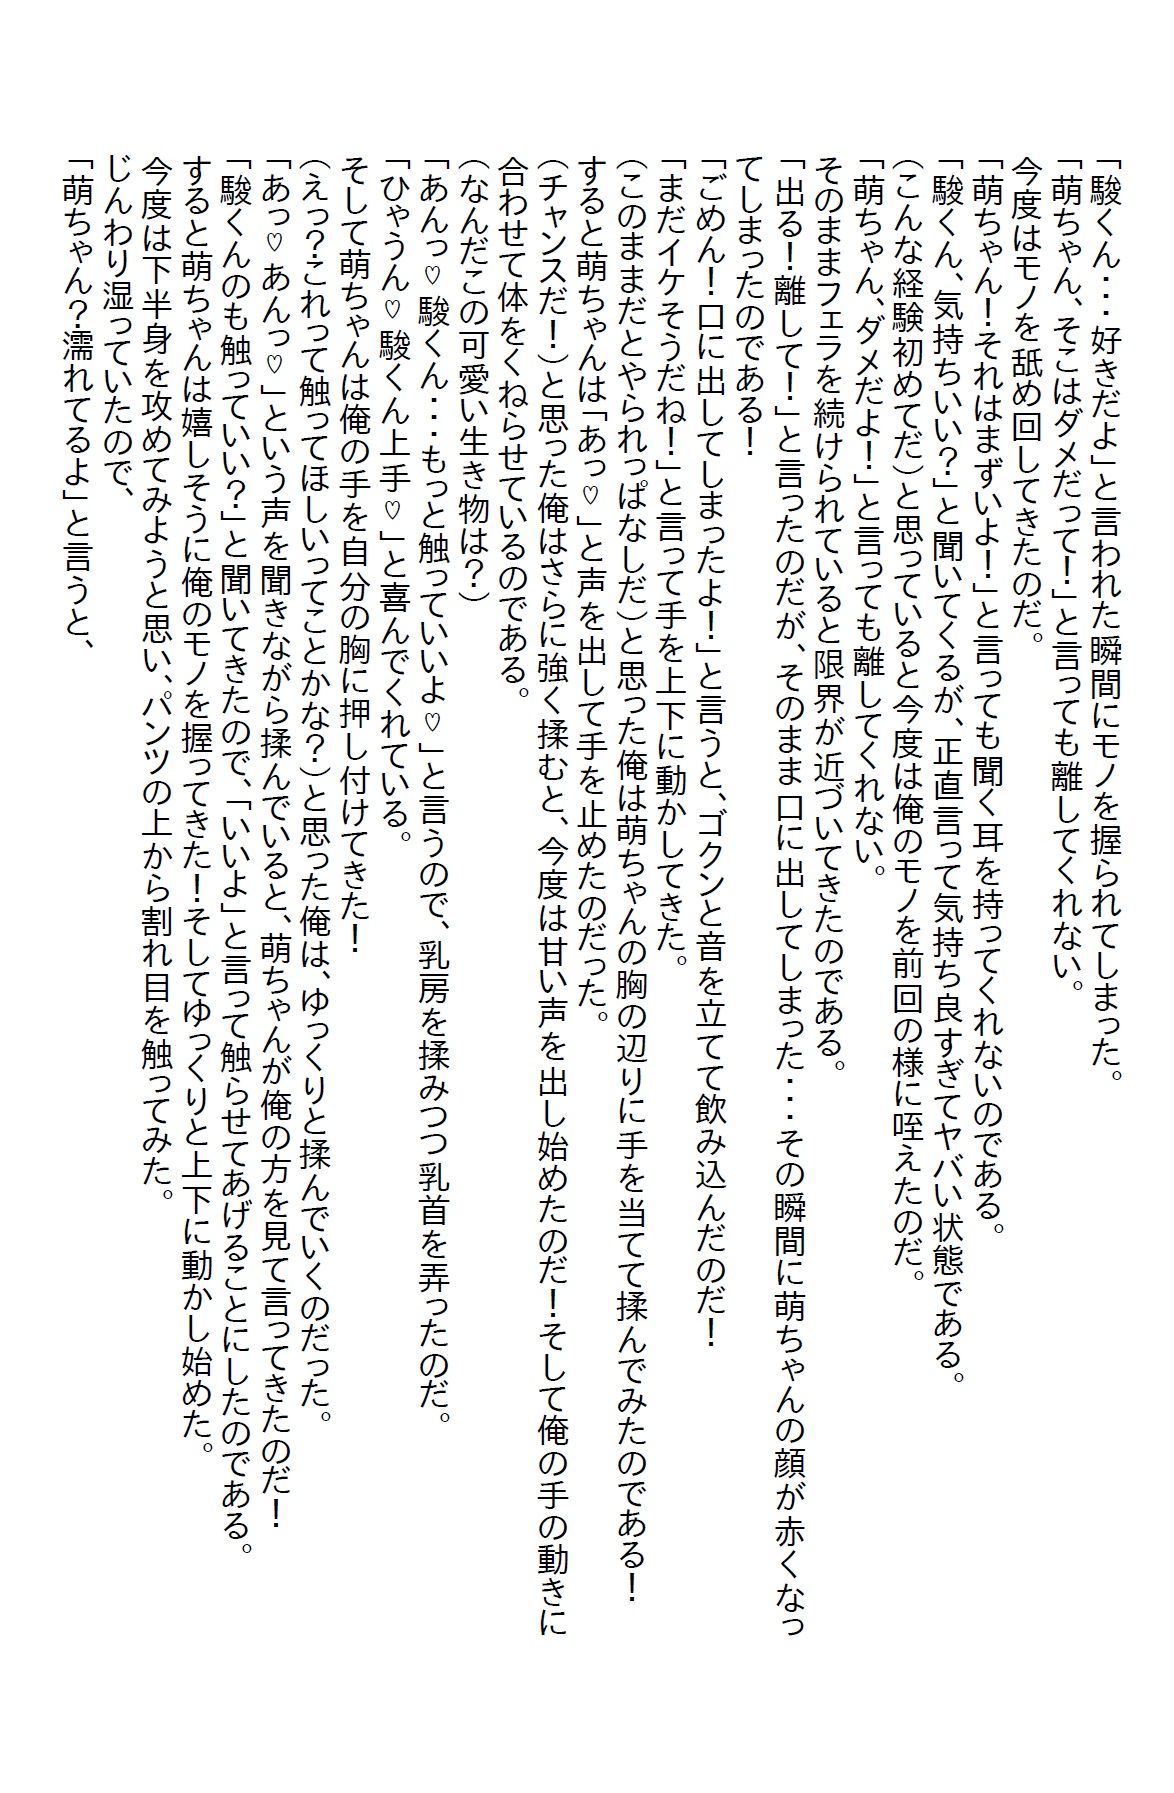 「駿くん・・・好きだよ」と言われた瞬間にモノを握られてしまった。
「萌ちゃん、そこはダメだって！」と言っても離してくれない。
今度はモノを舐め回してきたのだ。
「萌ちゃん！それはまずいよ！」と言っても聞く耳を持ってくれないのである。
「駿くん、気持ちいい？」と聞いてくるが、正直言って気持ち良すぎてヤバい状態である。
（こんな経験初めてだ）と思っていると今度は俺のモノを前回の様に咥えたのだ。
「萌ちゃん、ダメだよ！」と言っても離してくれない。
そのままフェラを続けられていると限界が近づいてきたのである。
「出る！離して！」と言ったのだが、そのまま口に出してしまった・・・その瞬間に萌ちゃんの顔が赤くなっ
てしまったのである！
「ごめん！口に出してしまったよ！」と言うと、ゴクンと音を立てて飲み込んだのだ！
「まだイケそうだね！」と言って手を上下に動かしてきた。
（このままだとやられっぱなしだ）と思った俺は萌ちゃんの胸の辺りに手を当てて揉んでみたのである！
すると萌ちゃんは「あっ♡」と声を出して手を止めたのだった。
（チャンスだ！）と思った俺はさらに強く揉むと、今度は甘い声を出し始めたのだ！そして俺の手の動きに
合わせて体をくねらせているのである。
（なんだこの可愛い生き物は？）
「あんっ♡駿くん・・・もっと触っていいよ♡」と言うので、乳房を揉みつつ乳首を弄ったのだ。
「ひゃうん♡駿くん上手♡」と喜んでくれている。
そして萌ちゃんは俺の手を自分の胸に押し付けてきた！
（えっ？これって触ってほしいってことかな？）と思った俺は、ゆっくりと揉んでいくのだった。
「あっ♡あんっ♡」という声を聞きながら揉んでいると、萌ちゃんが俺の方を見て言ってきたのだ！
「駿くんのも触っていい？」と聞いてきたので、「いいよ」と言って触らせてあげることにしたのである。
すると萌ちゃんは嬉しそうに俺のモノを握ってきた！そしてゆっくりと上下に動かし始めた。
今度は下半身を攻めてみようと思い、パンツの上から割れ目を触ってみた。
じんわり湿っていたので、
「萌ちゃん？濡れてるよ」と言うと、